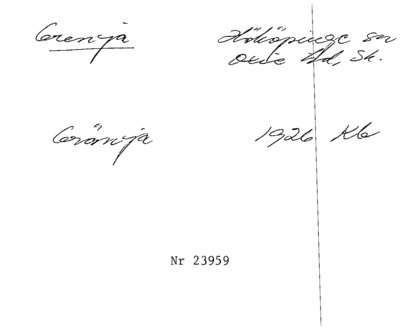 Grenija
Hököpinge sn
Oxie hd, Sk.
Gränija
1926 Kb
Nr 23959